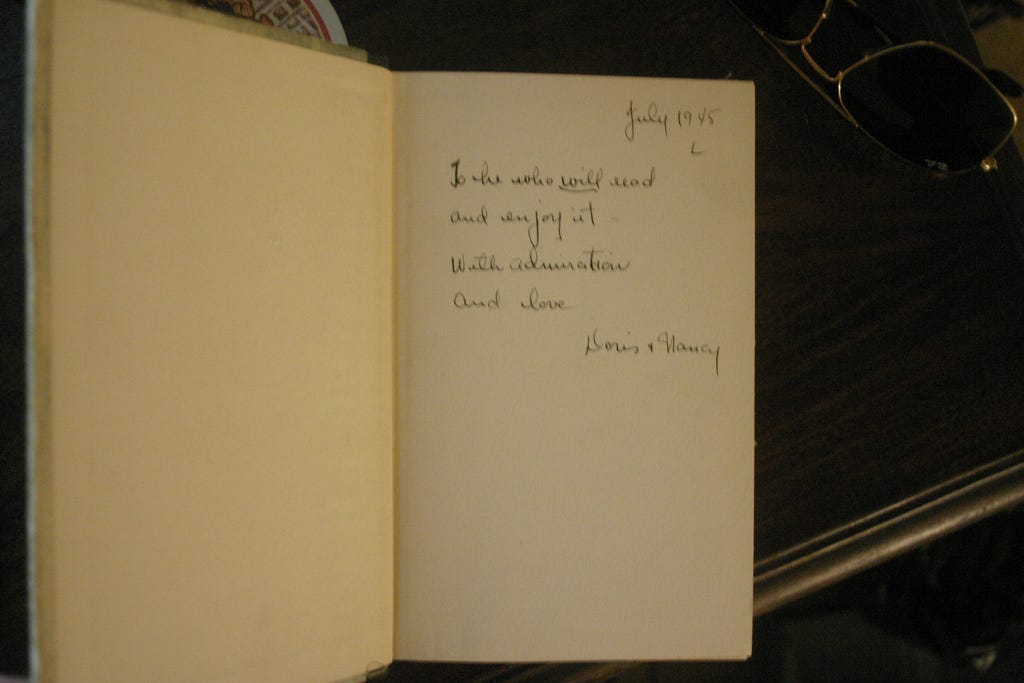 July 1945
L
To he who will read
and enjoy it -
With admiration
and love
Doris + Nancy